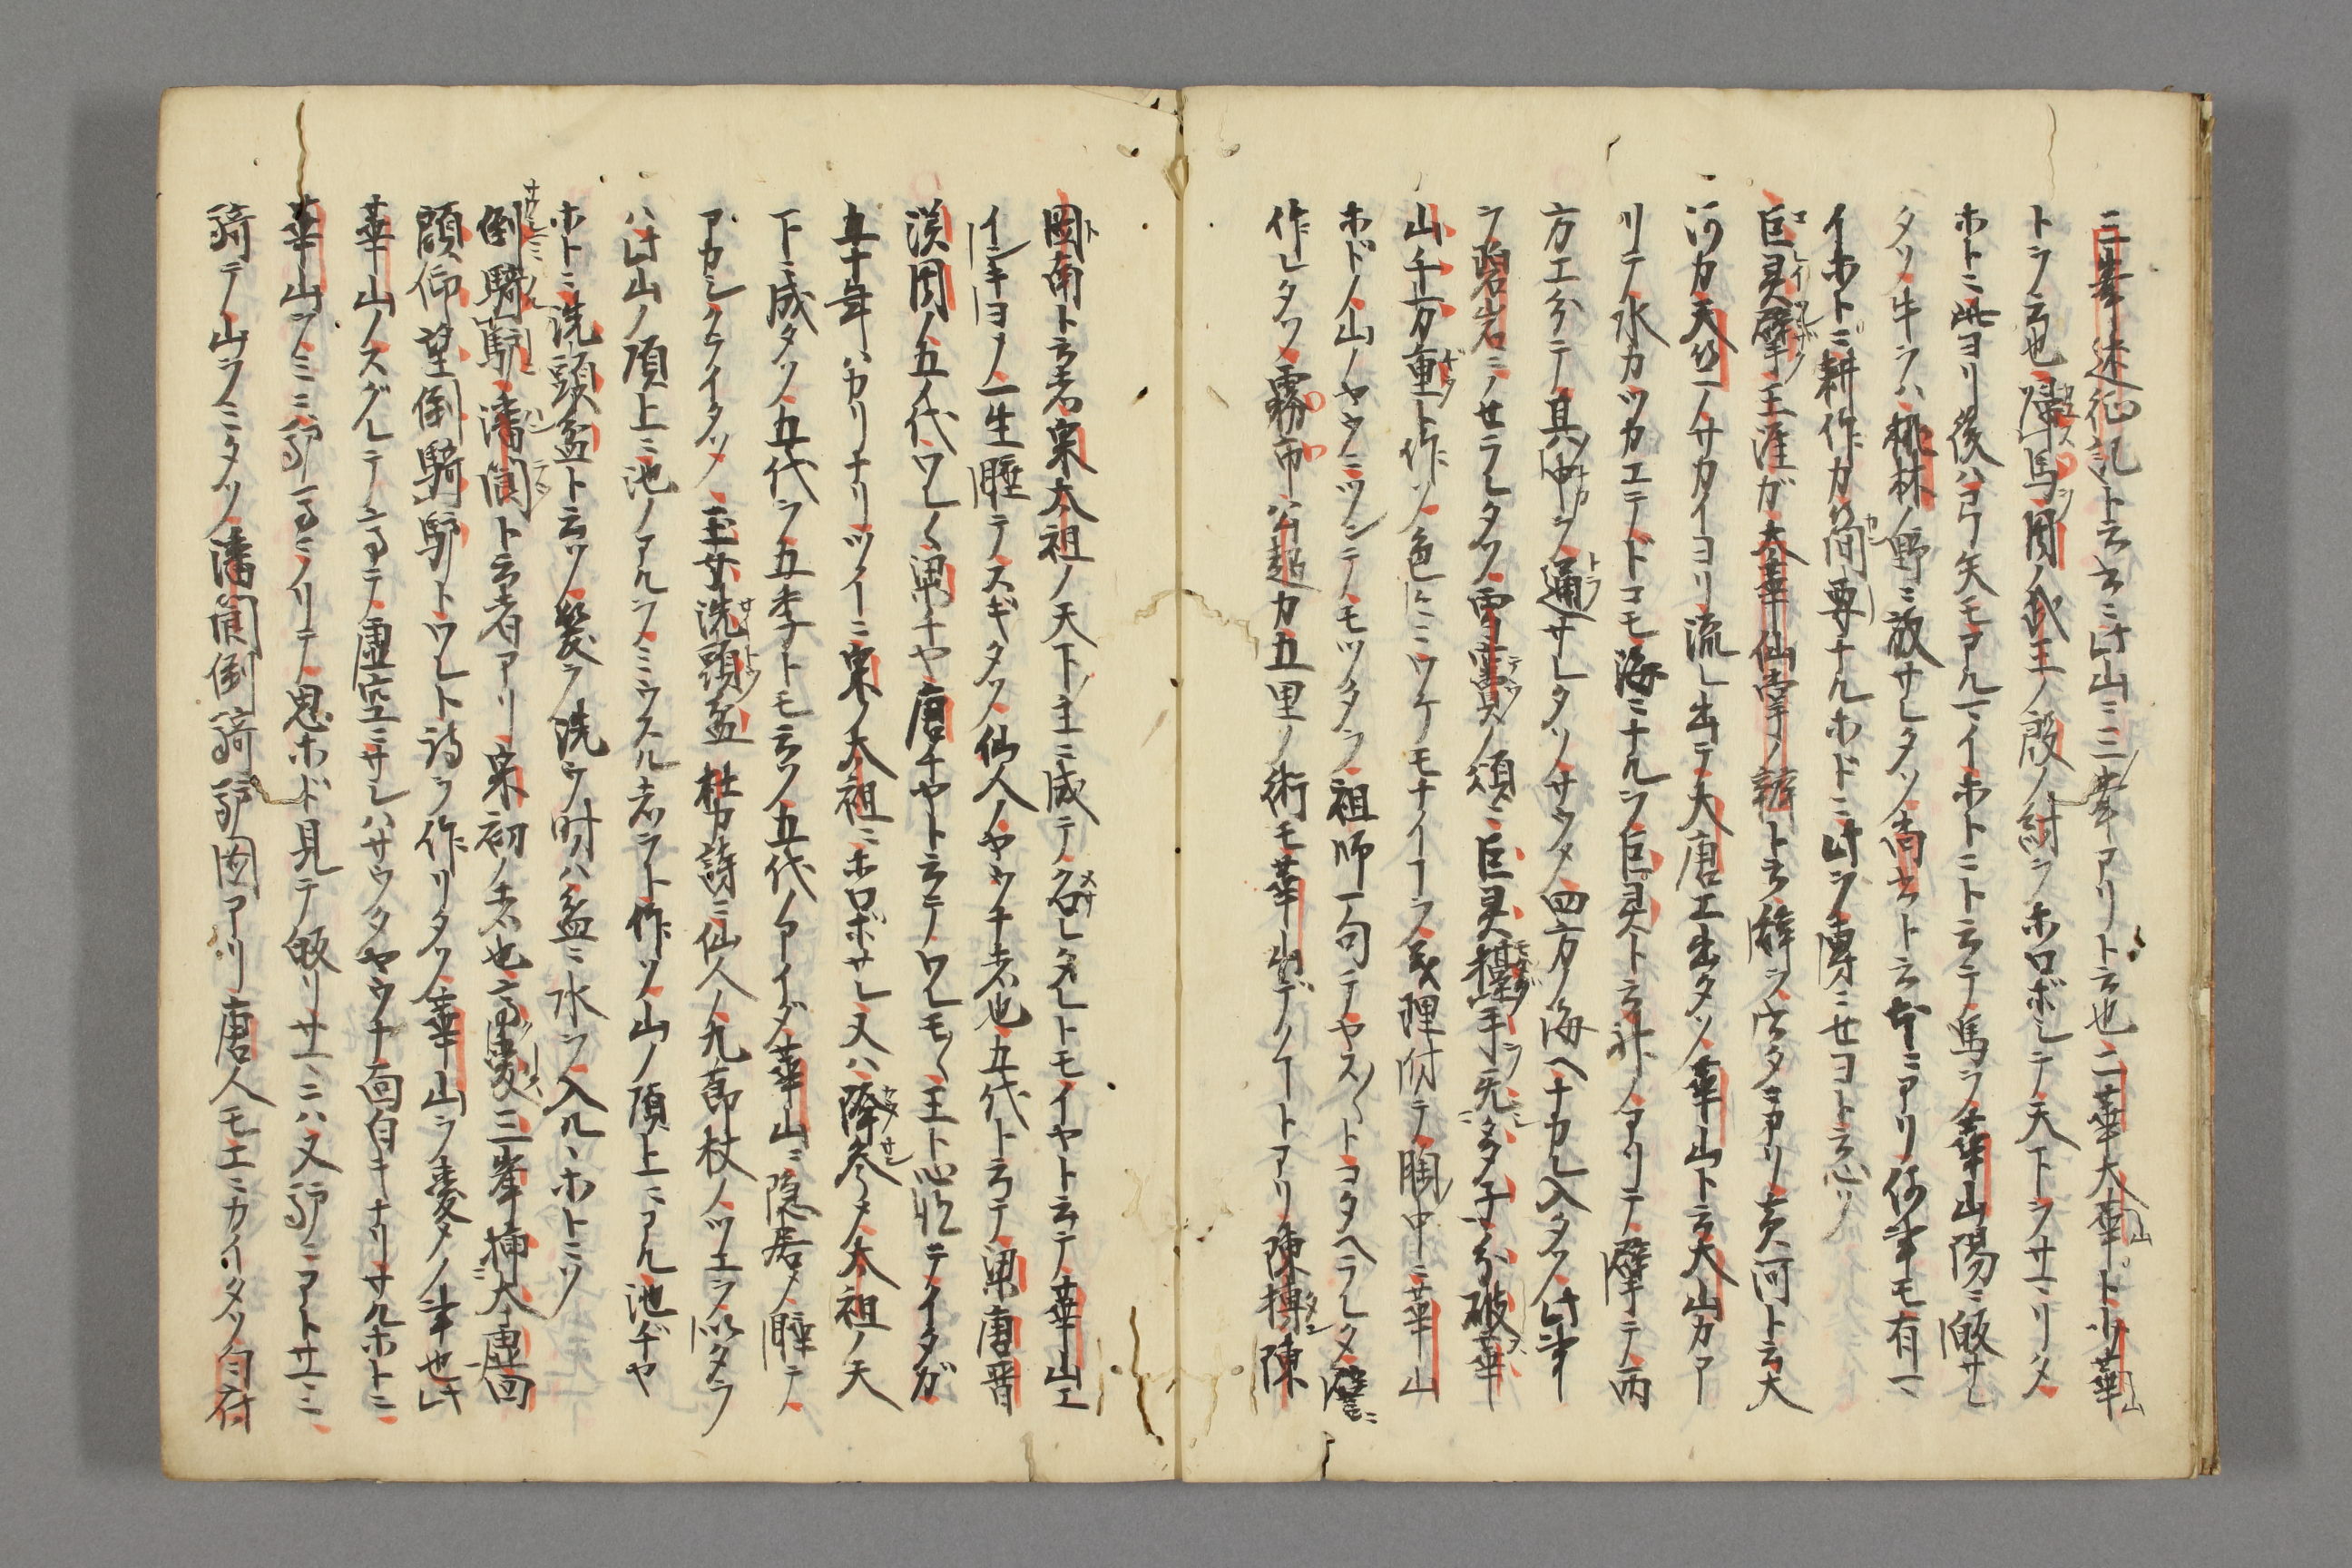 三峯述征記ト云㕝ミ此山ニ三峯アリト云也二華大華ト小華
トヲ云也帰馬周ノ武王ノ殷ノ紂ヲホロボシテ天下ヲサマリタ
ホトニ此ヨリ後ハ弓矢モアルマイホトニト云テ馬ヲ華山陽ニ皈サレ
タソ牛ヲハ桃林ノ野ニ放サレタソ尚書ト云本ニアリ何事モ有マ
イホトニ耕作カ簡要ナルホドニ此ヲ專ニせヨト云心ソ
巨灵擘王涯ガ太華仙掌ノ辯ト云辞ヲ
河カ天竺ノサカイヨリ流レ出テ大唐エ出タソ華山ト云大山カア
リテ水カツカエテドコモ海ニナルヲ巨灵ト云神ノアリテ擘テ両
方エ分テ其中ヲ通サレタソサウメ四方ノ海ヘナカレ入タソ此事
ヲ碧岩ニノせラレタソ雪竇ノ頌ニ巨灵擡手无多子分破華
山千万重ト作ソ色〻ニツケモナイコヲ義理附テ胸中ニ華山
ホドノ山ノヤウニツンテモツタヲ祖師一句テヤス〱トコタヘラレタ
作レタソ霧市公超カ五里ノ術モ華山デノコトアリ陳摶陳
圖南ト云者宋太祖ノ天下ノ主ニ成テ召レタレトモイヤト云テ華山エ
イシキヨノ一生睡テスギタソ仙人ノヤウナ者也五代ト云テ梁唐晋
漢周ノ五ノ代ワレ〱梁チヤ唐チヤト云テワレモ〱王ト心地テイタガ
五十年ハカリナリツイニ宋ノ太祖ニホロボサレ又ハ降参メ太祖ノ天
下ニ成タソ五代ヲ五季トモ云ソ五代ノアイダ華山ニ隠居メ睡テ
アカシクライタソ玉女洗頭盆杜カ詩ニ仙人ノ九節杖ノツエヲ以タラ
ハ此山ノ頂上ニ池ノアルヲノミウスル者ヲト作ソ山ノ頂上ニアル池ヂヤ
ホトニ洗頭盆ト云ソ髪ヲ洗ウ时ハ盆ニ水ヲ入ルヽホトニソ
倒騎驢潘閬ト云者アリ宋初ノ者也高愛三峯挿太虚回
頭仰望倒騎驢トワレト詩ヲ作リタソ華山ヲ愛タノ事也此
華山ノスグレテ高テ虚空ニサシハサウタヤウナ面白キナリサルホトニ
華山ヲノミニ驢馬ニノリテ思ホド見テ皈リサマニハ又驢ニアトサマニ
騎テ山ヲノミタソ潘閬倒騎驢図アリ唐人モエニカイタソ